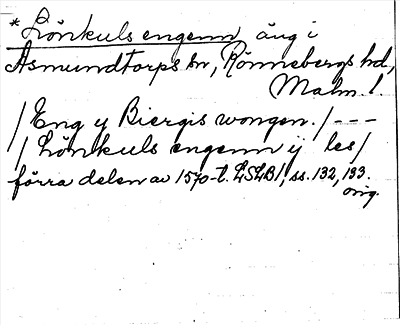 *Lönkuls engenn äng i
Asmundtorps sn, Rönnebergs hd,
Malm. l.
/ Eng y Biergis wongen. / ---
/ Lönkuls engenn ij les /
förra delen av 1570-t. LSLB1, ss. 132, 133.
orig.